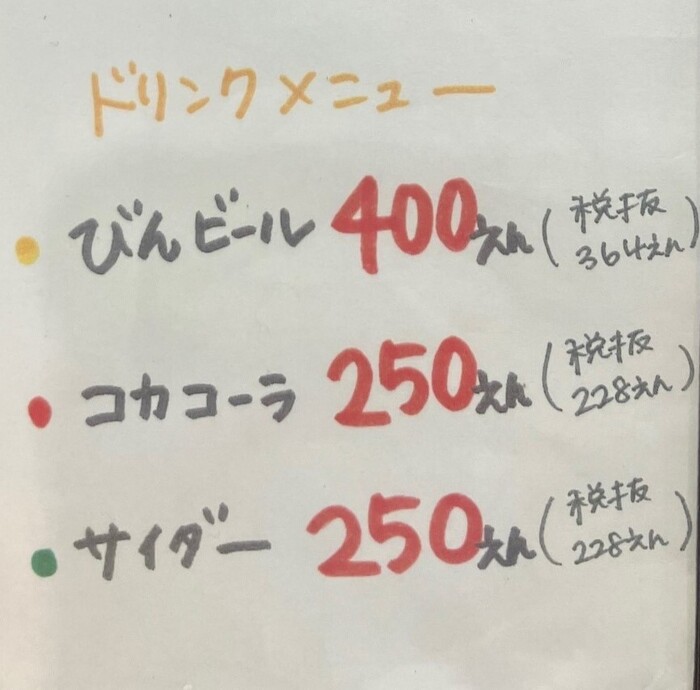 ドリンクメニュー
びんビール 400えん(税抜 364えん)
コカコーラ 250えん(税抜 228えん)
サイダー 250えん(税抜 228えん)